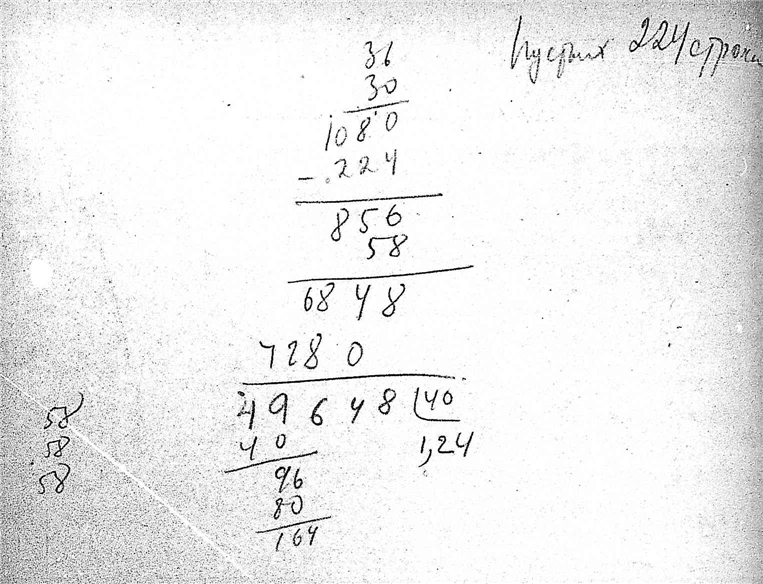 Пустых 224 строки
36
30
1080
- 224
856
58
6848
4280
49648 40
40 1,24
96
80
164
58
58
58